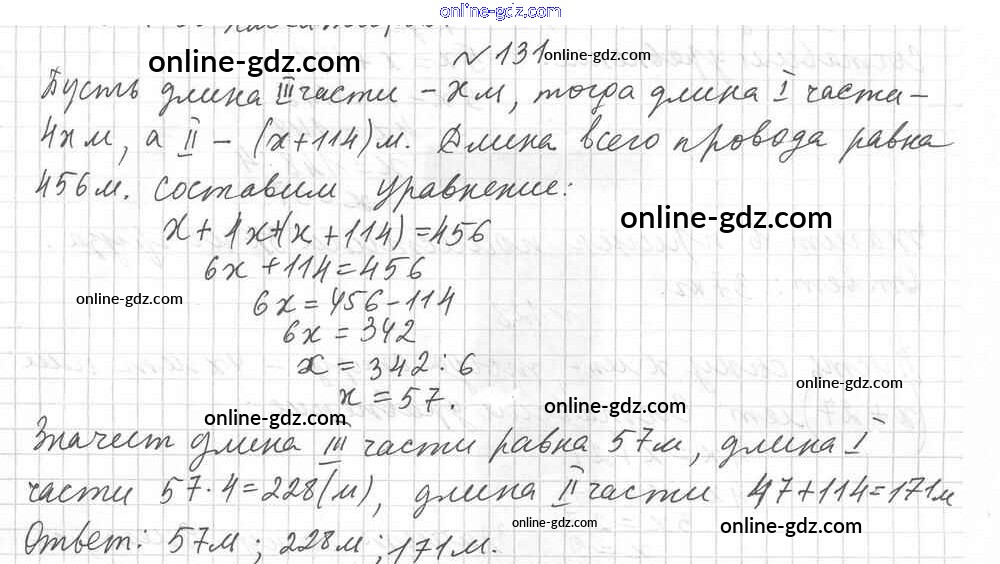 online-gdz.com
№ 131 online-gdz.com
online-gdz.com
Пусть длина III части – x м, тогда длина I части –
4x м, а II – (x+114) м. Длина всего провода равна
456 м. составим уравнение:
online-gdz.com
x + 4x+(x + 114) = 456
6x + 114 = 456
online-gdz.com
6x = 456 - 114
6x = 342
x = 342 : 6
online-gdz.com
x = 57.
online-gdz.com
online-gdz.com
Значит длина III части равна 57 м, длина I
части 57 · 4 = 228 (м), длина II части 47 + 114 = 171 м
online-gdz.com
online-gdz.com
Ответ: 57 м ; 228 м ; 171 м.